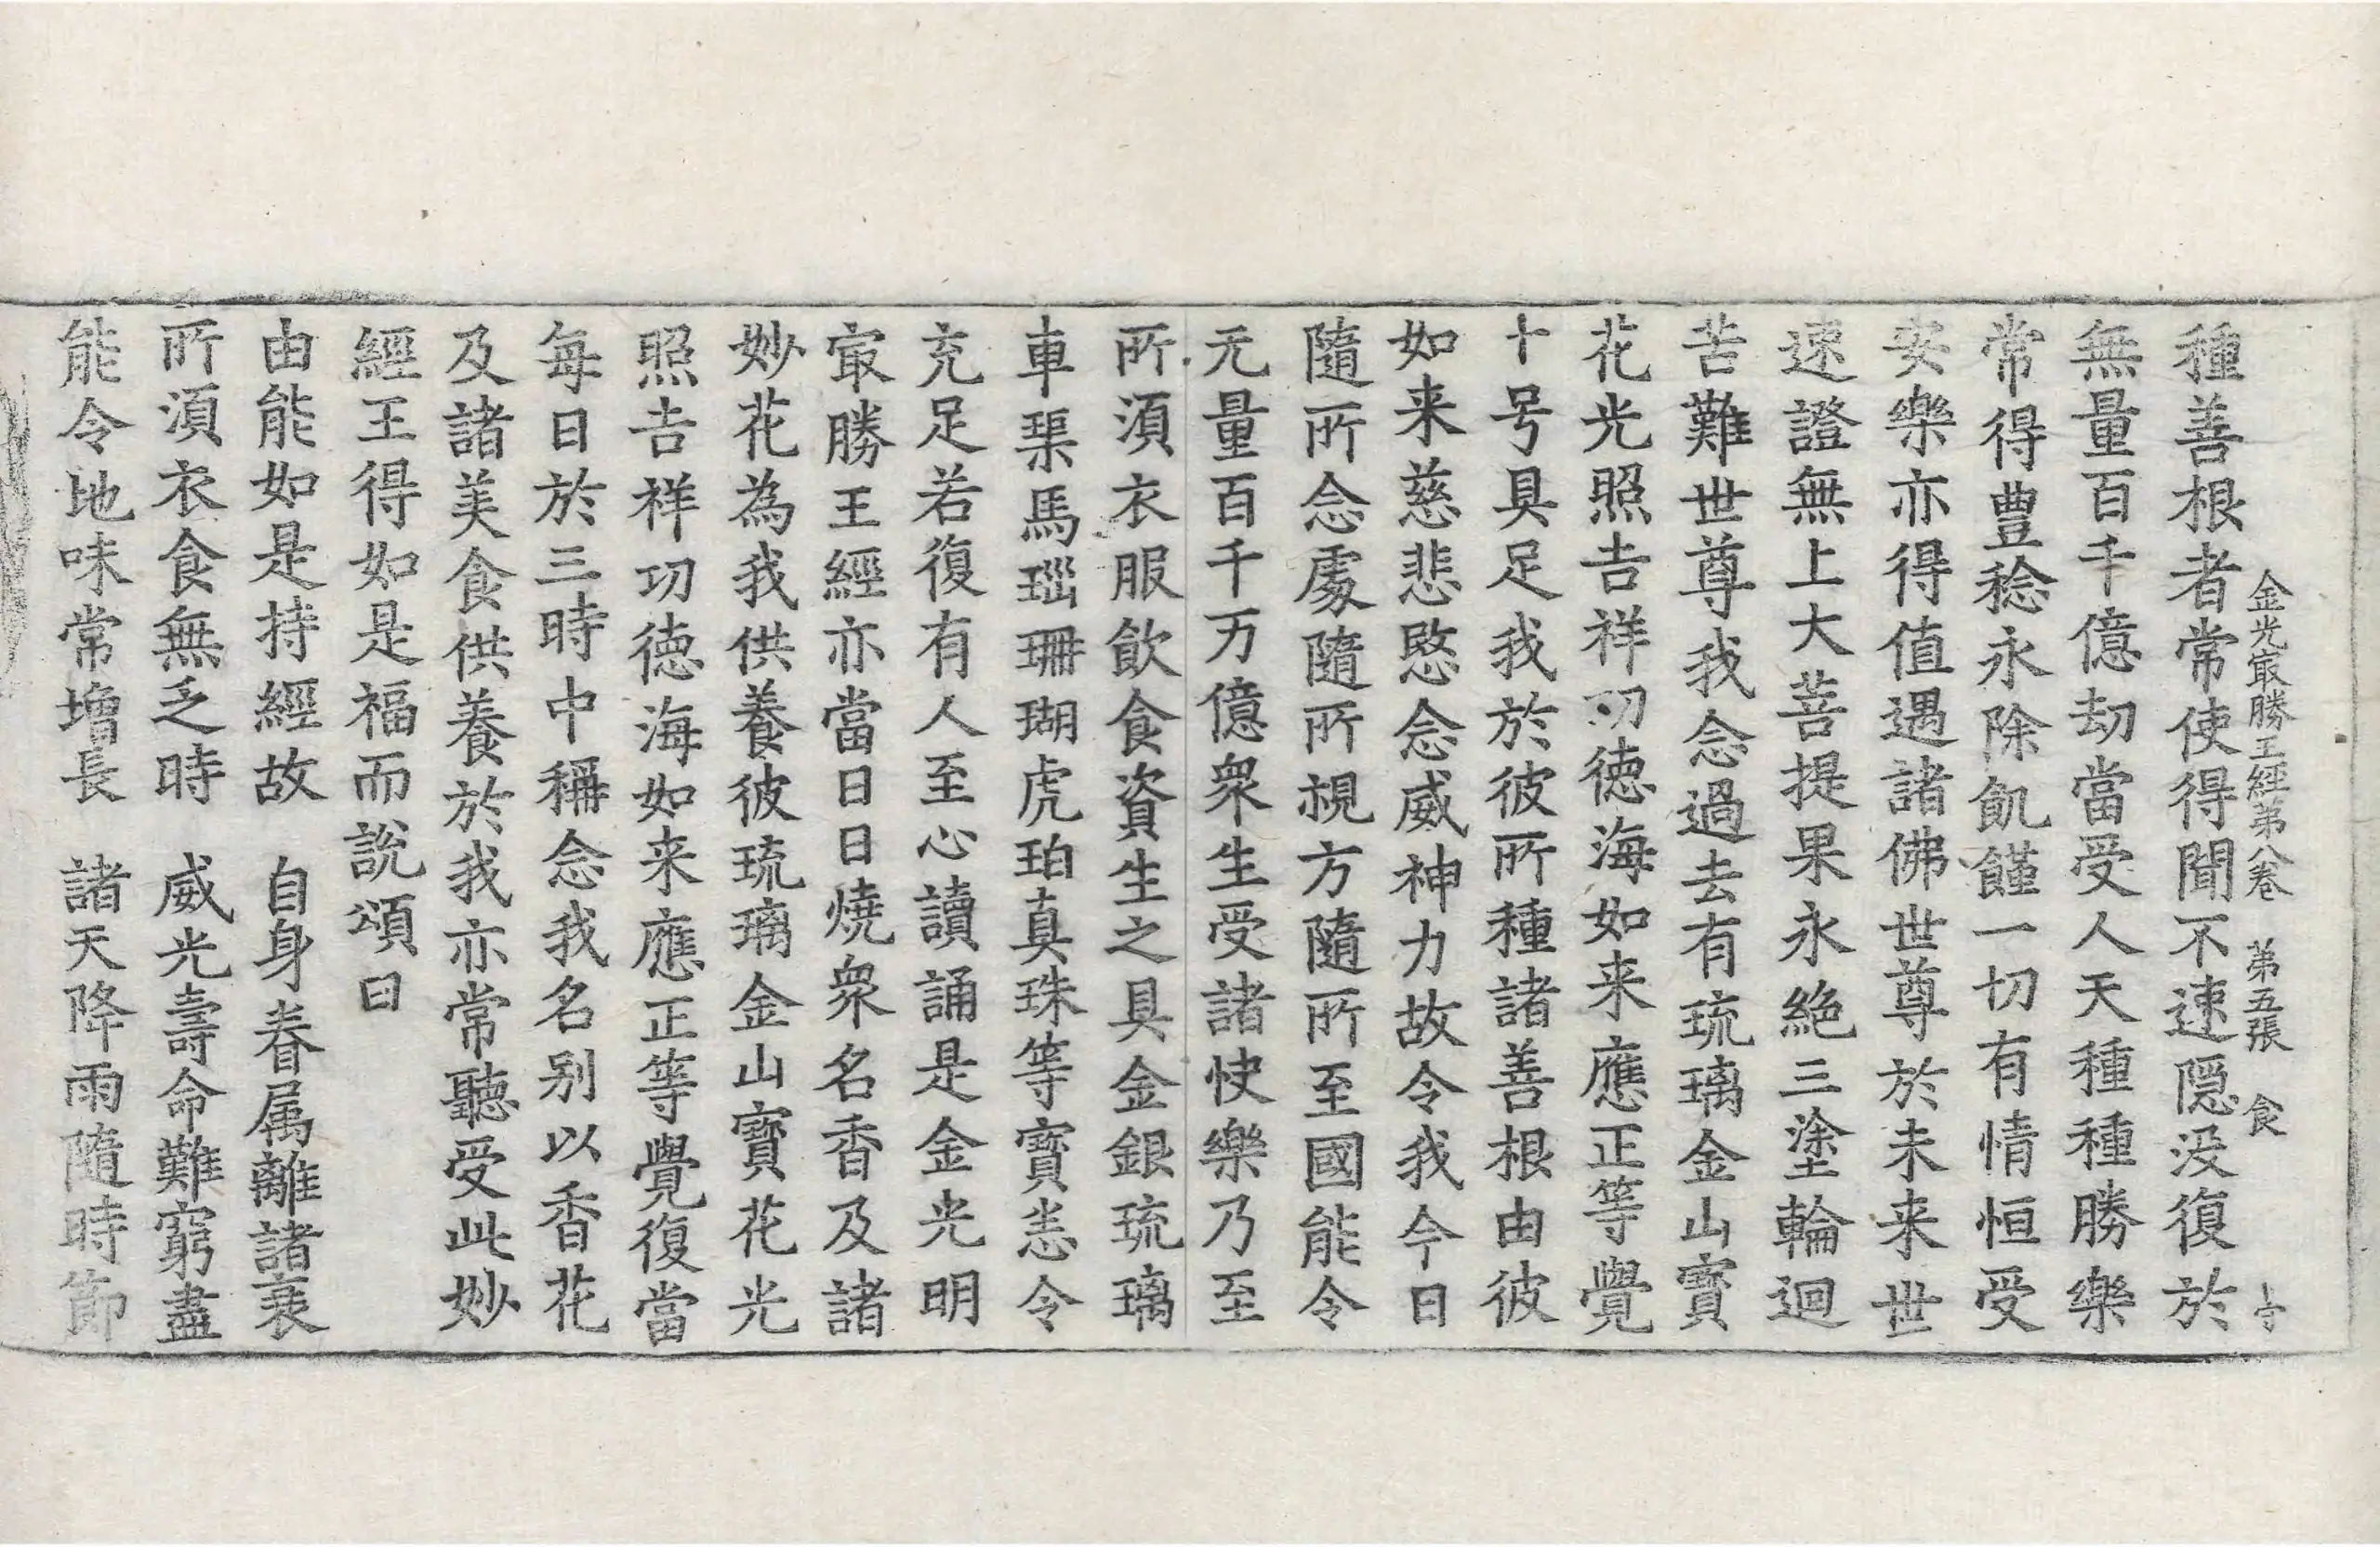 金光㝡勝王經苐八卷　苐五張　食
種善根者常使得聞不速隠没復於
無量百千億劫當受人天種種勝樂
常得豊稔永除飢饉一切有情恒受
安樂亦得值遇諸佛世尊於未来世
速證無上大菩提果永絶三塗輪迴
苦難世尊我念過去有琉璃金山寶
花光照吉祥㓛徳海如来應正等覺
十号具足我於彼所種諸善根由彼
如来慈悲愍念威神力故令我今日
隨所念處隨所視方隨所至國能令
元量百千万億衆生受諸快樂乃至
所湏衣服飲食資生之具金銀琉璃
車𤦲馬瑙珊瑚虎珀真珠等寶恙令
充足若復有人至心讀誦是金光明
㝡勝王經亦當日日燒衆名香及諸
妙花為我供養彼琉璃金山寶花光
照吉祥㓛徳海如来應正等覺復當
每日於三時中稱念我名别以香花
及諸美食供養於我亦常聽受此妙
經王得如是福而說頌曰
由能如是持經故　自身眷属離諸衰
所湏衣食無乏時　威光壽命難窮盡
能令地味常增長　諸天降雨隨時節